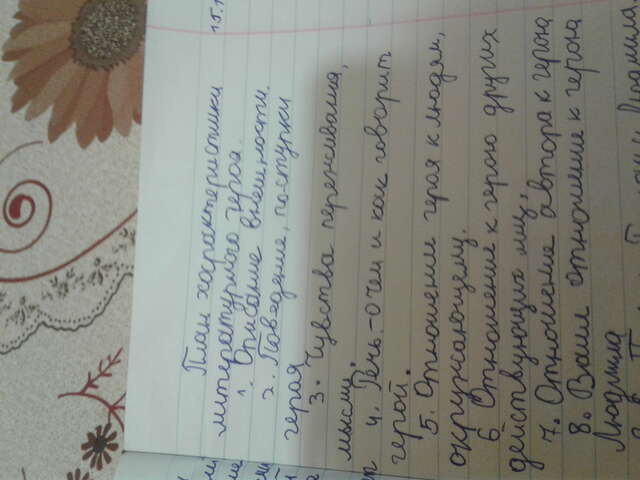 План характеристики
литературного героя.
1. Описание внешности.
2. Поведение, поступки
героя
3. Чувства переживания,
мысли.
4. Речь - о чем и как говорит
герой.
5. Отношении героя к людям,
окружающему.
6 Отношение к герою других
действующих лиц.
7. Отношение автора к герою
8. Ваше отношение к герою
Людмила
Людмила